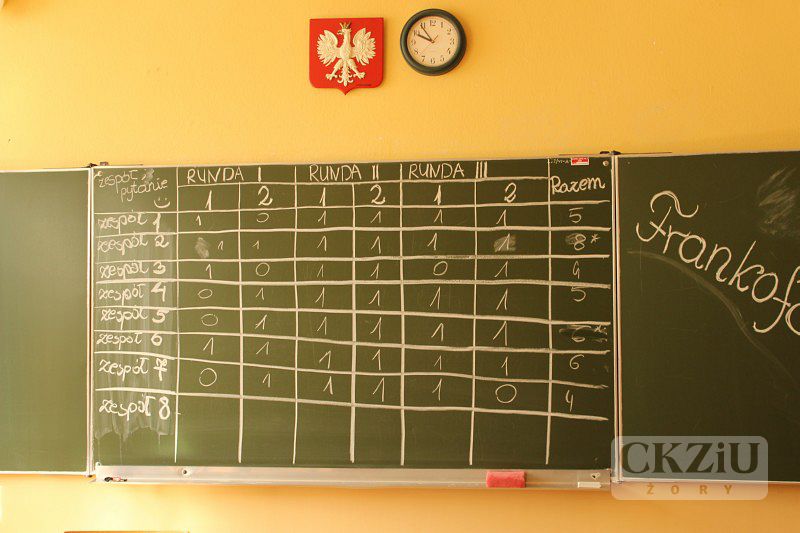 zespół RUNDA I RUNDA II RUNDA III
pytanie 1 2 1 2 1 2 Razem
zespół 1 1 0 1 1 1 1 5
zespół 2 1 1 1 1 1 1 8*
zespół 3 1 0 1 1 0 1 4
zespół 4 0 1 1 1 1 1 5
zespół 5 0 1 1 1 1 1
zespół 6 1 1 1 1 1 1 6
zespół 7 0 1 1 1 1 0 4
zespół 8
Frankofo
CKZiU
ŻORY